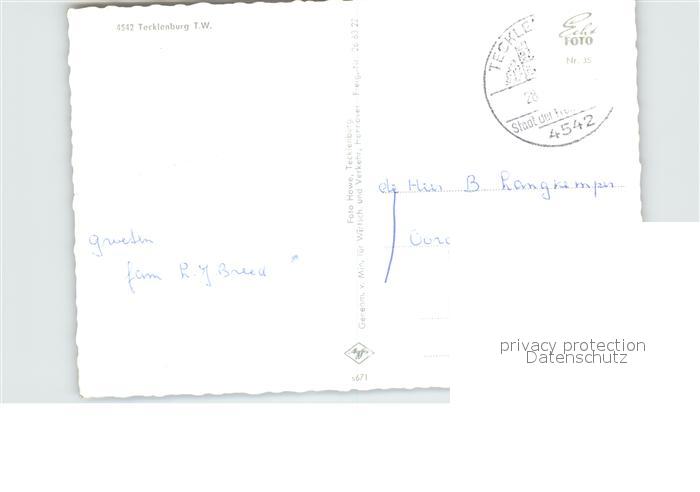 4542 Tecklenburg T.W.
groeten
fam L. J Breed
Foto Howe, Tecklenburg
Genehm. v. Min. für Wirtsch. und Verkehr, Hannover Freig.-Nr. 26 63 22
s671
TECKLE
28
Stadt der
4542
Echt
FOTO
Nr. 35
B Langkemper
privacy protection
Datenschutz